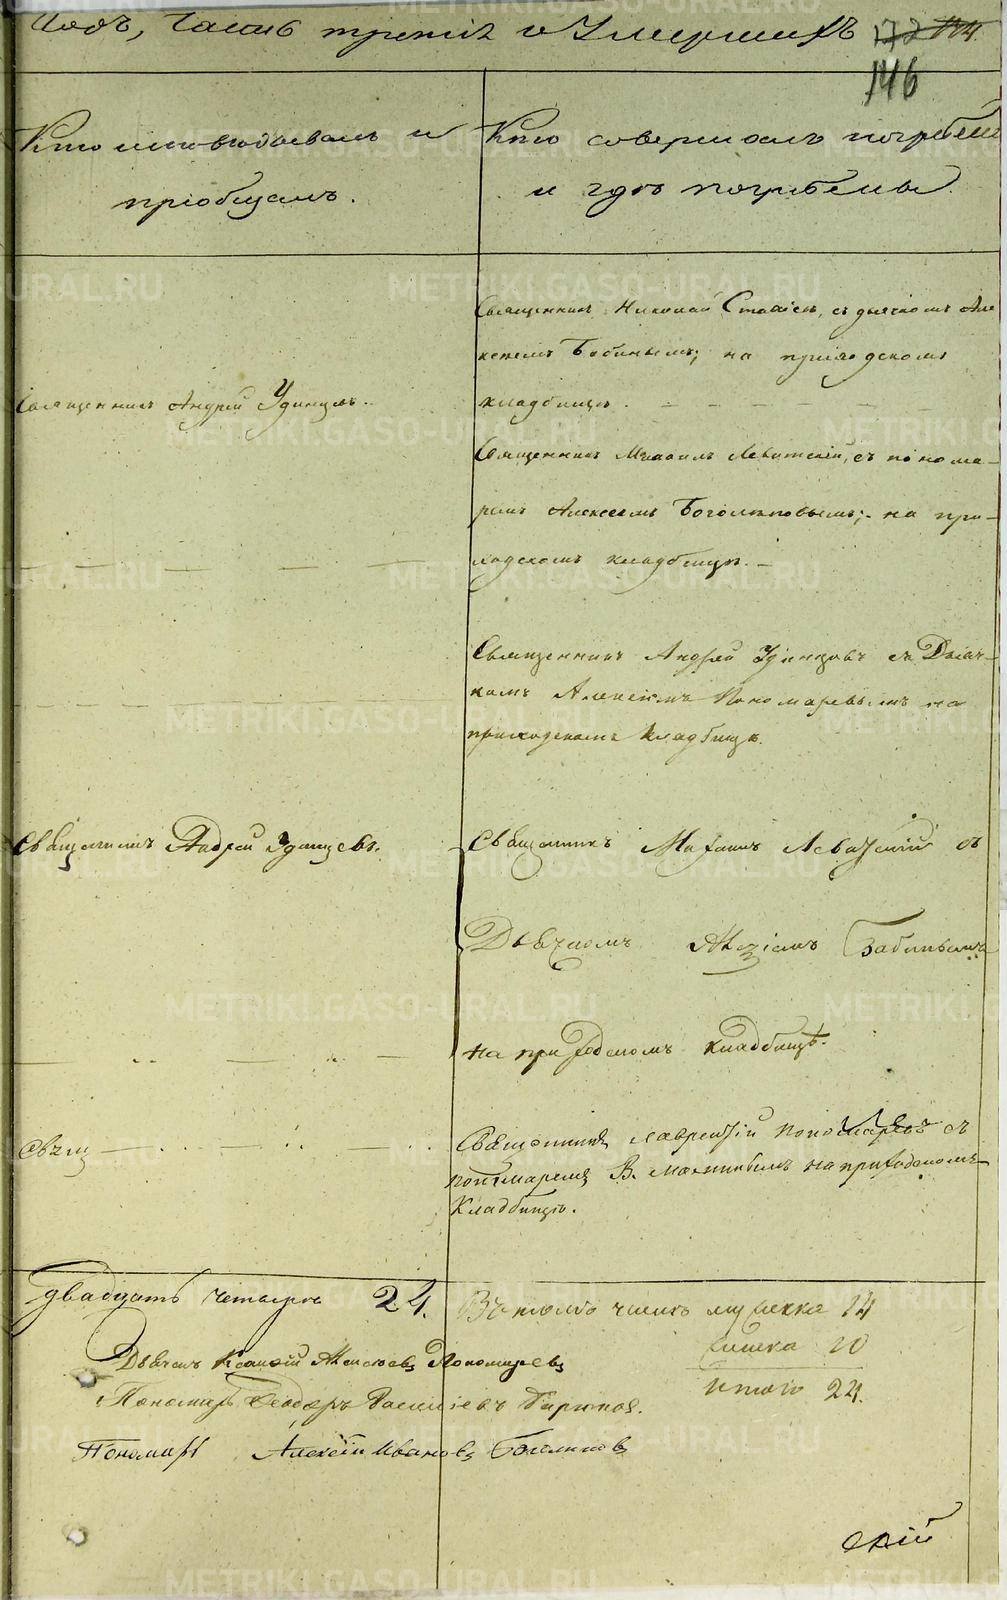 Годъ, Часть третія о Умершихъ
146
Кто исповѣдывалъ и
пріобщалъ.
Кто совершалъ погребеніе
и гдѣ погребены
Священникъ Николай съ дьячкомъ Але
ксіемъ Бабинымъ; на приходскомъ
Священникъ Андрей Удинцовъ.
кладбищѣ.
Священникъ Михаилъ Левитскій, съ понома-
ремъ Алексеемъ Боголеповымъ; на при-
ходскомъ кладбищѣ.
Священникъ Андрей Удинцовъ съ Дьяч-
комъ Алексіемъ Пономаревымъ на
приходскомъ кладбищѣ.
Священникъ Андрей Удинцевъ.
Священникъ Михаилъ Левитскій съ
Дьячкомъ Алексіемъ Бабинымъ
на приходскомъ кладбищѣ.
Священникъ Лаврентій Пономаревъ съ
пономаремъ В. на приходскомъ
Кладбищѣ.
двадцать четыре 24.
Въ томъ числѣ мужеска 14
женска 10
Итого 24.
Дьячекъ Алексѣевъ Пономаревъ
Пономарь Ѳеодоръ Васильевъ
Пономарь Алексѣй Ивановъ Боголеповъ
METRIKI.GASO-URAL.RU